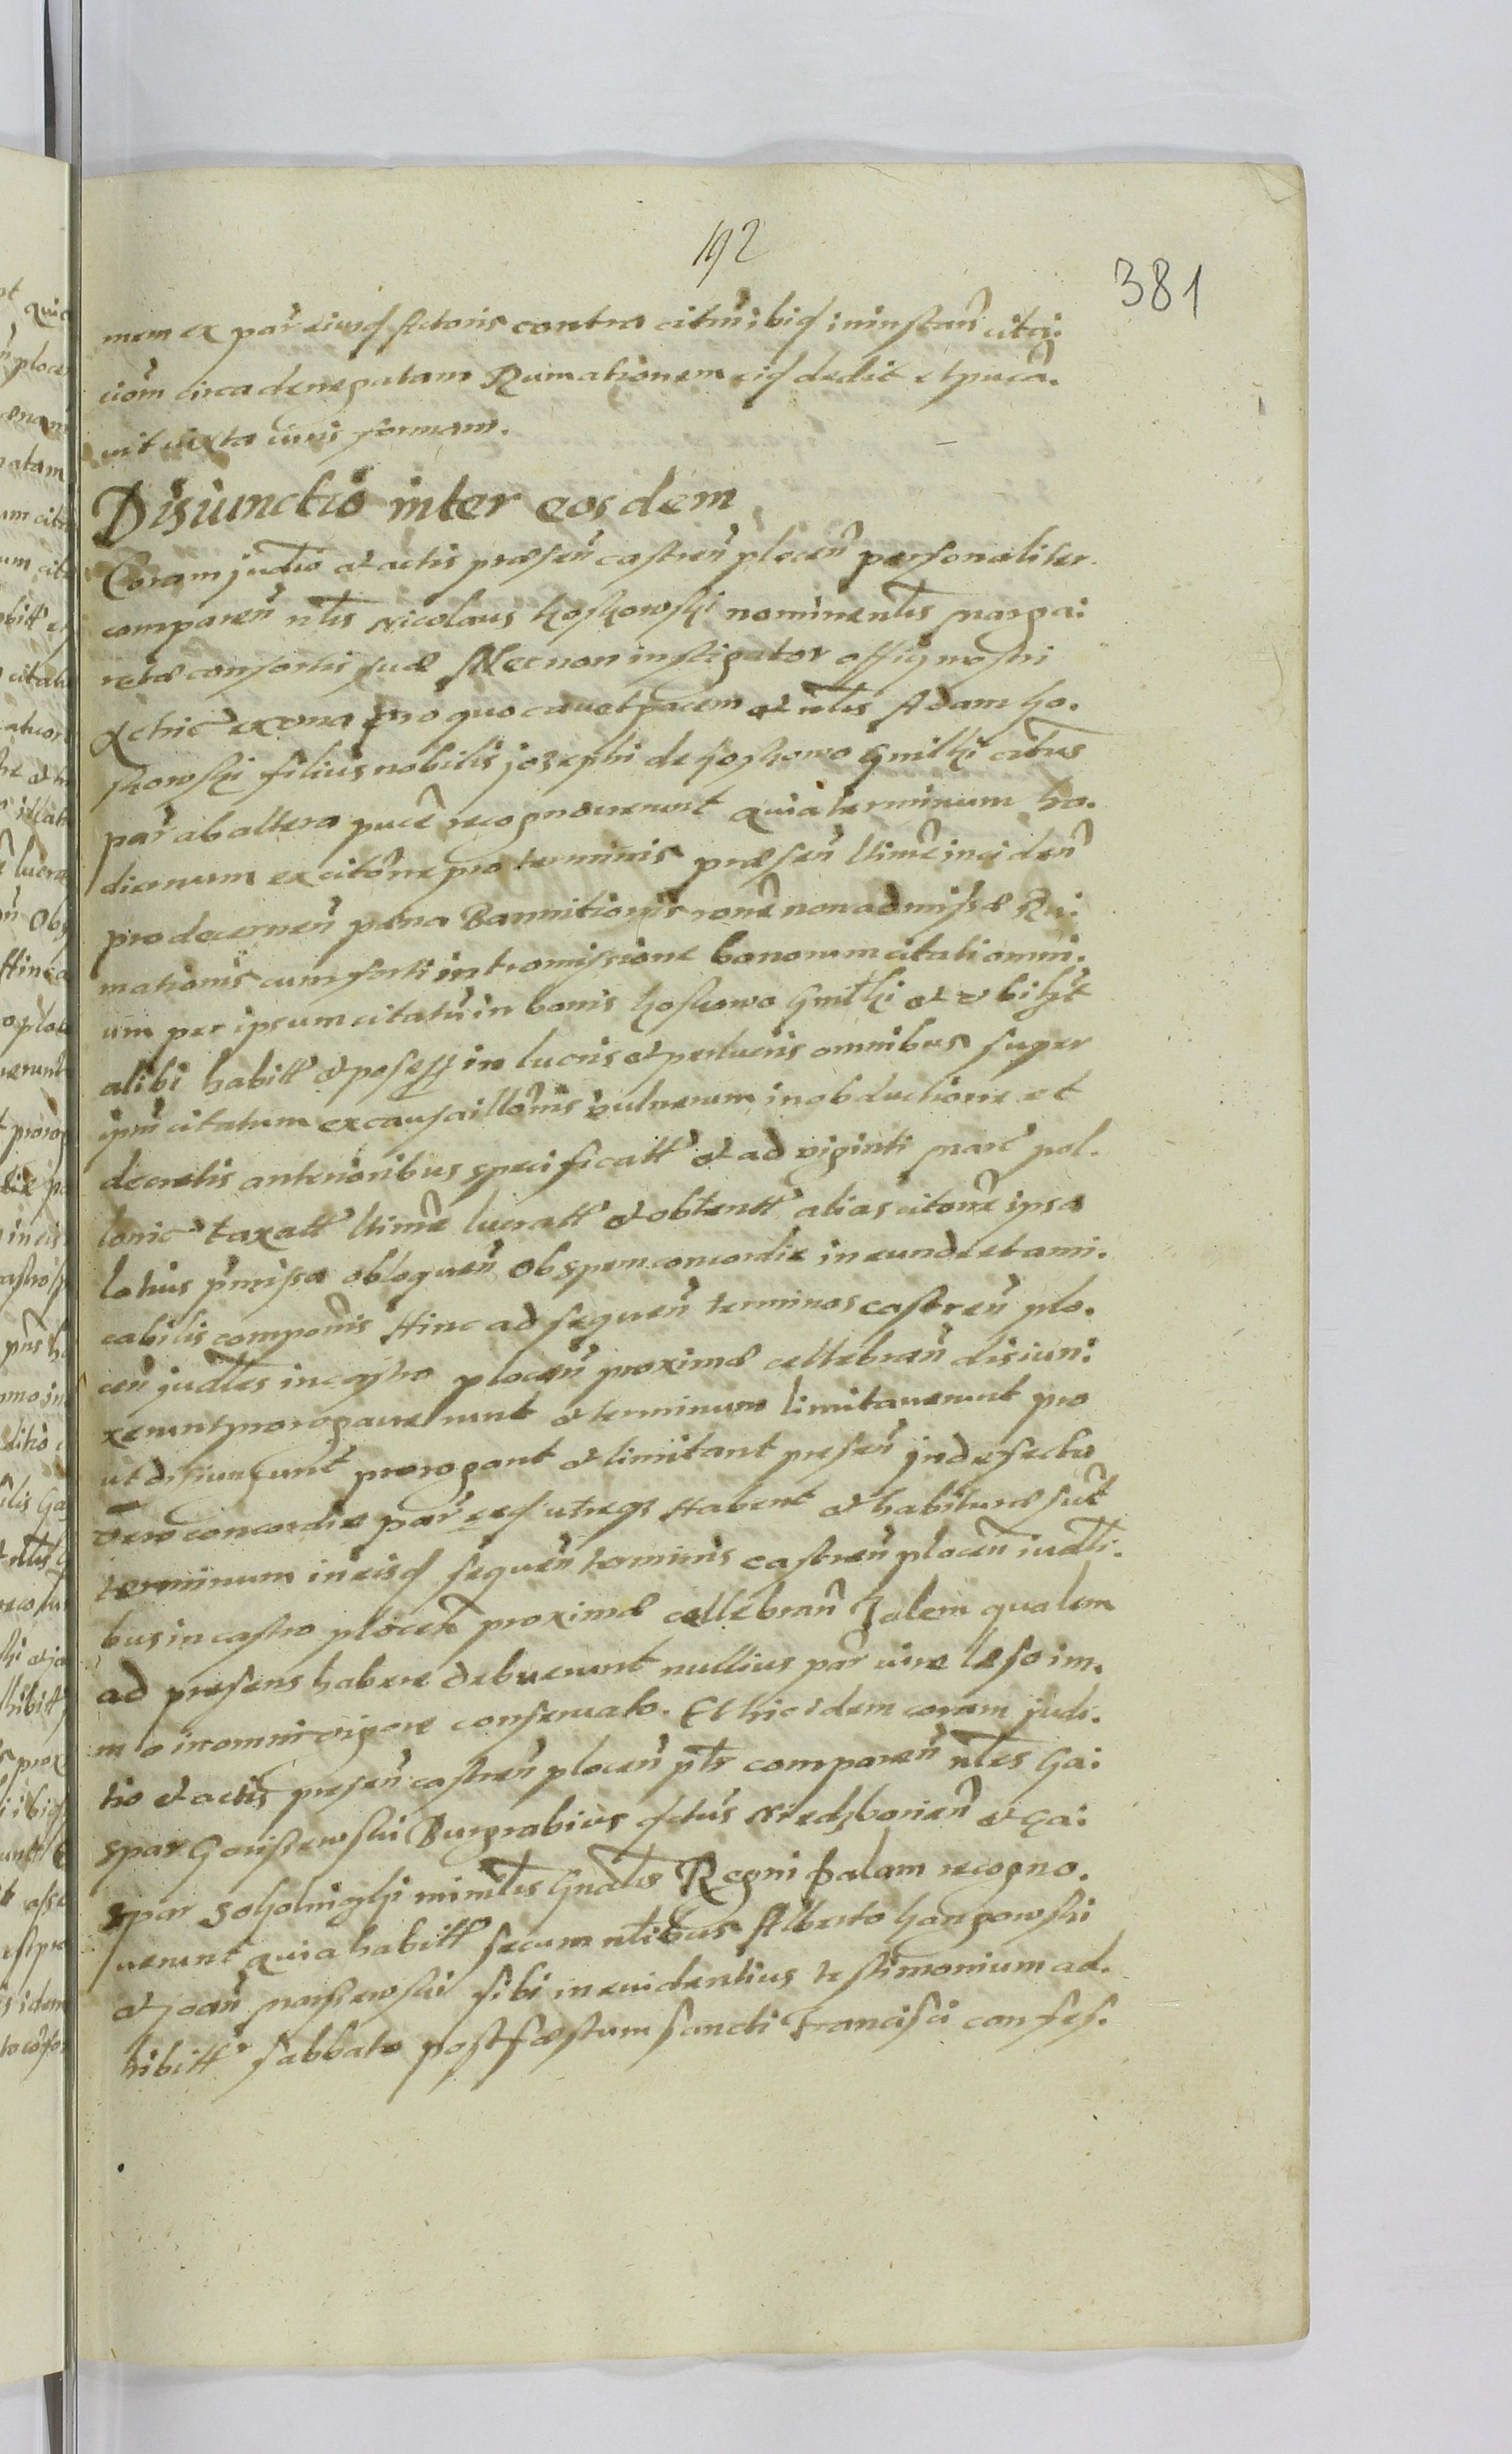 192
381
mem ex par eiusd Actoris contra citm̄ ibid in instan cita:
tiom circa denegatam Rumationem eid dedit et puca.
uit iuxta iuris formam.
Disiunctio inter eosdem
Coram judtio et actis præsen castren plocen personaliter
comparen nlis Nicolaus Koskowski nomine nlis Marga:
retæ consortis suæ Necnon instigator offiy nostri
Actric ex una pro quo cauet pacem et nlis Adam Ko.
skowski filius nobilis josephi de Koskowo Gnilki citus
par ab altera puce recognouerunt quia terminum ho.
diernum ex citone pro terminis præsen ltime inciden
pro decernen pæna Bannitionis rone non admissæ Ru:
mationis cum forti intromissione bonorum citati omni.
um per ipsum citatum in bonis Koskowo Gnilki et vbiliżt
alibi habitt et possess in lucris et perlucris omnibus super
ipm citatum ex causa illonis vulnerum in obductione et
decretis anterioribus specificatt et ad viginti marc pol.
lonic taxatt ltime lucratt et obtentt alias citone ipsa
latius pmissa obloquen Ob spem concordiæ ineundæ et ami.
cabilis componis Hinc ad sequen terminos castren plo.
cen judles in castro plocen proxime cellebran disiun:
xerunt prorogauerunt et terminum limitauerunt pro
ut disiungunt prorogant et limitant presen In defectu
vero concordiæ par eed utreqs Habent et habituræ sut
terminum in eisd sequen terminis castren plocen iudli.
bus in castro plocen proxime cellebran talem qualem
ad presens habere debuerunt nullius par iure læso im.
mo in omni vigore conseruato. Et hic idem coram judi.
tio et actis presen castren plocen plr comparen nles Ga:
spar Goniszewski Burgrabius actus Niedzborien et Ga:
spar Sokolnigki mintles Gnales Regni palam recogno.
uerunt quia habitt secum nlibus Alberto Kangowski
et Joan Marszewski sibi in euidentius testimonium ad.
hibitt Sabbato post fæstum Sancti Francisci confes.